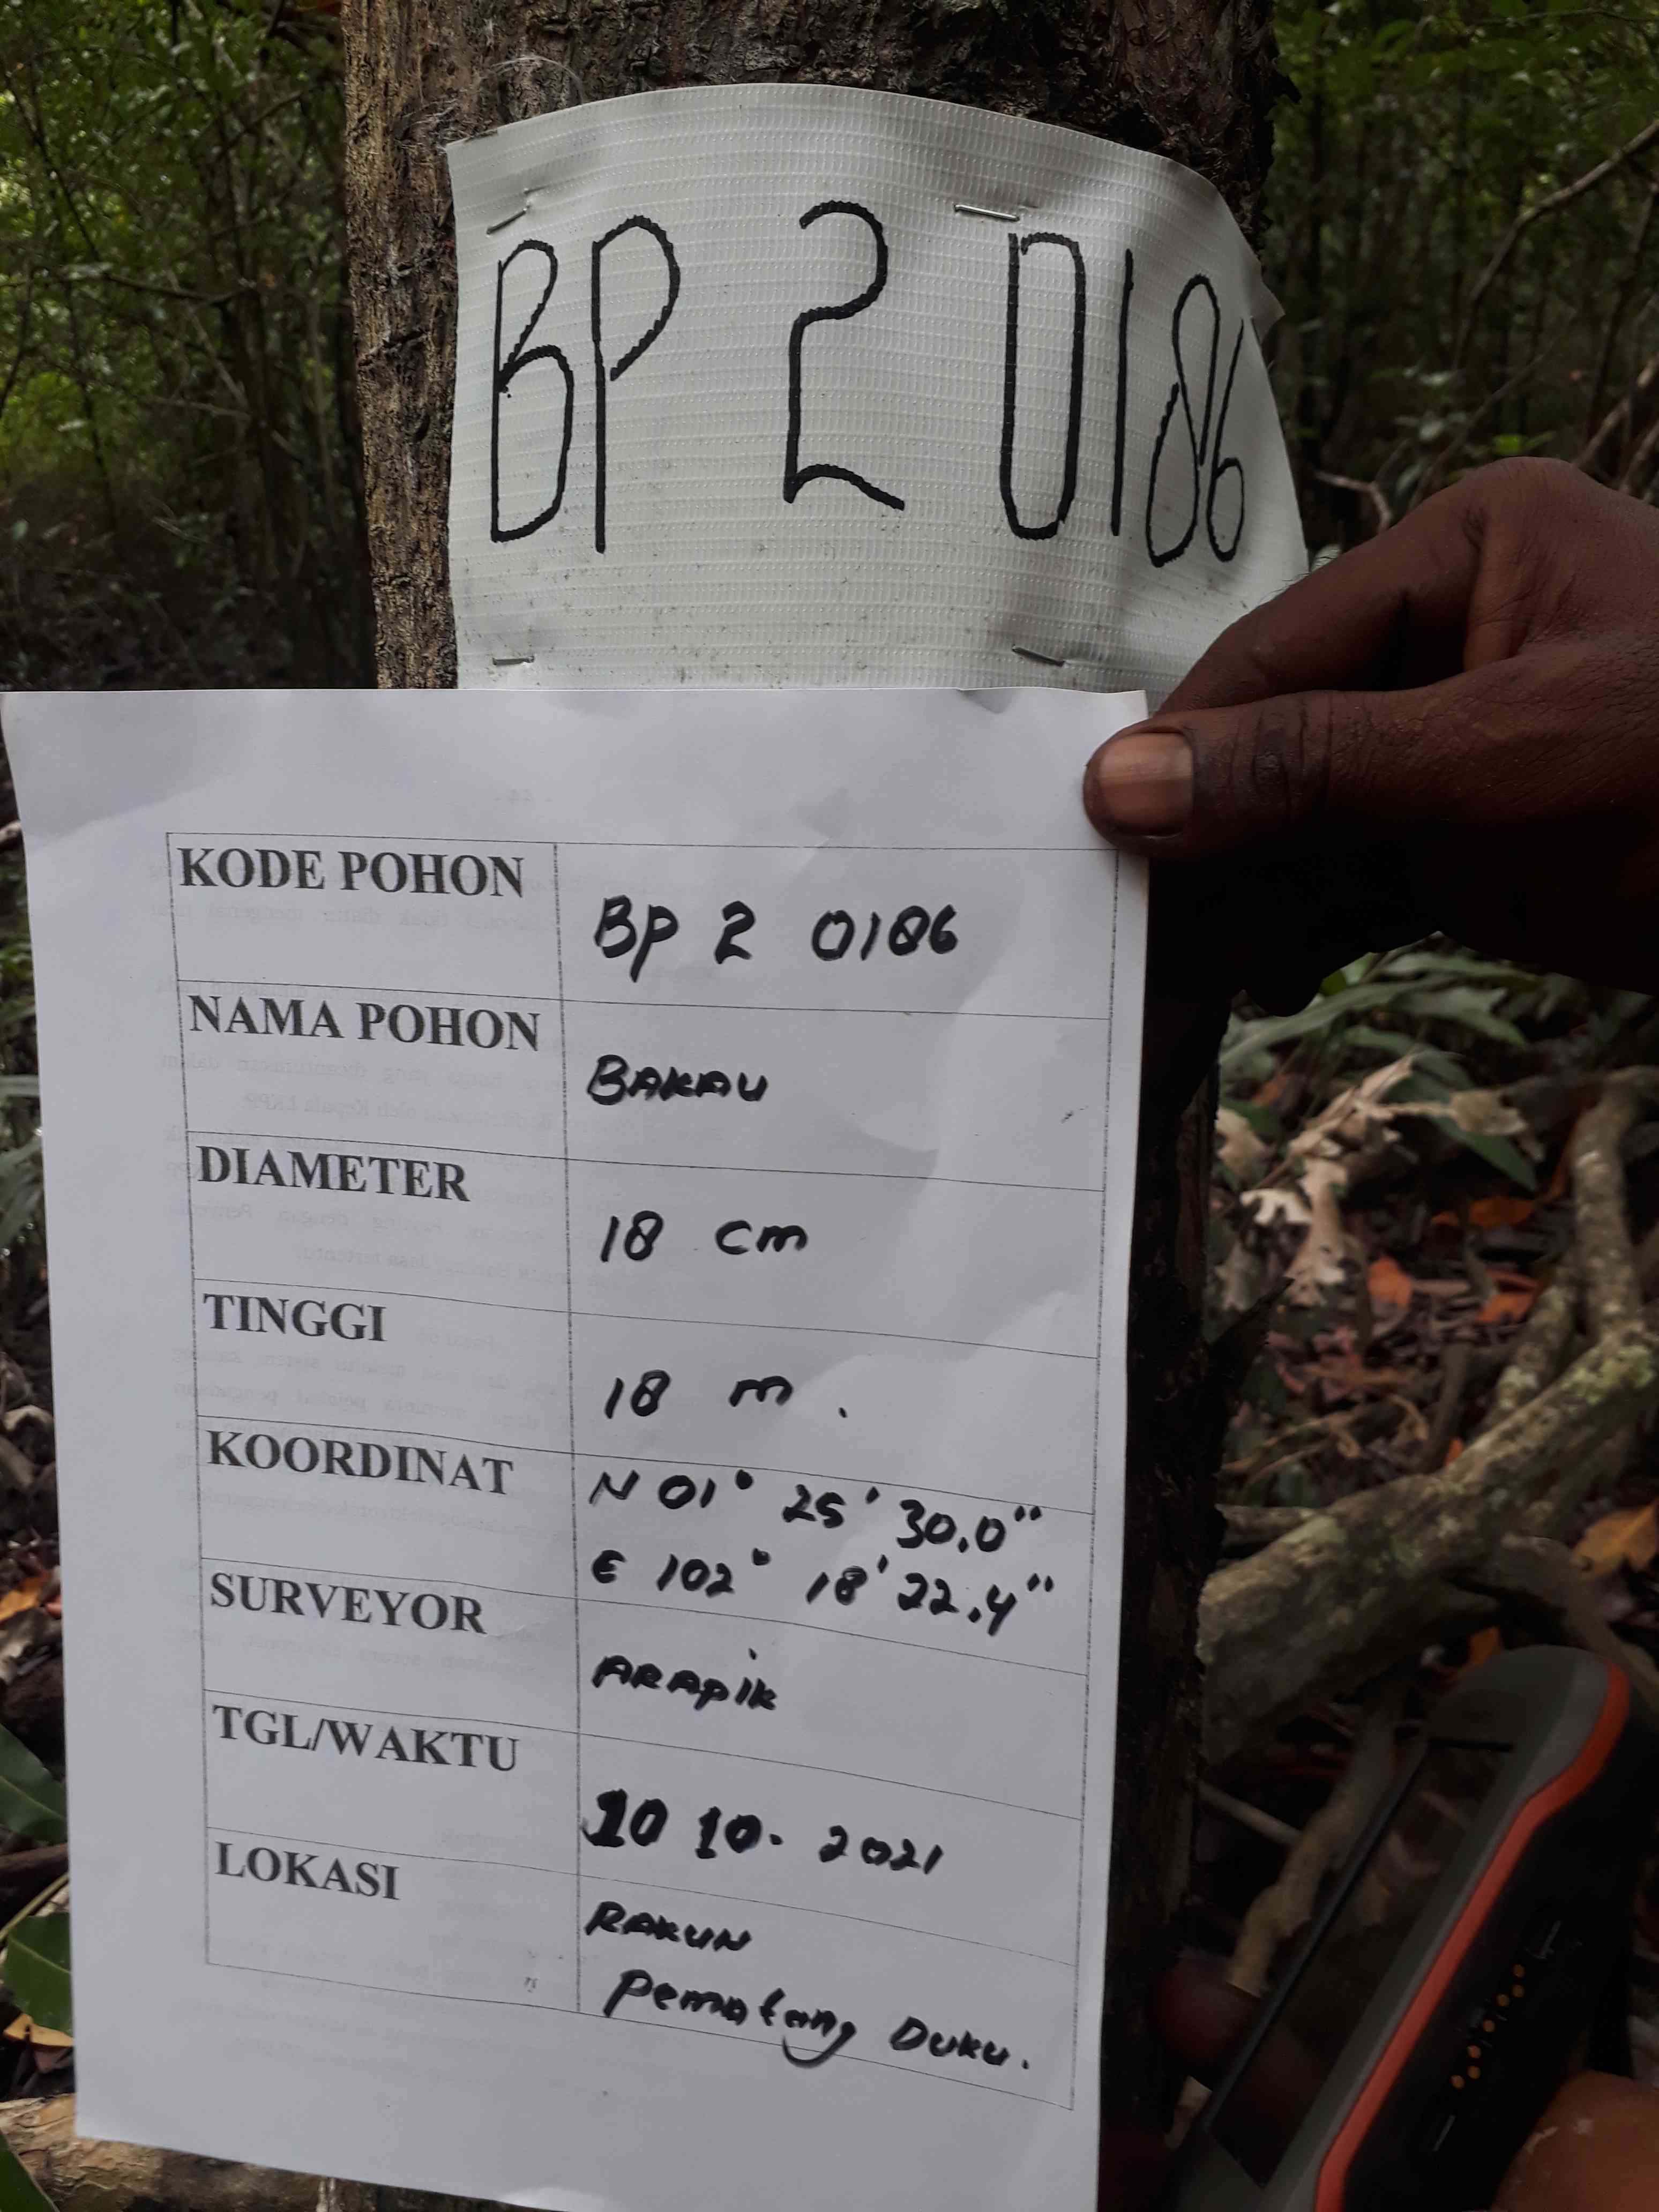 BP 2 0186
KODE POHON
BP 2 0186
NAMA POHON
BAKAU
DIAMETER
18 cm
TINGGI
18 m.
KOORDINAT
N 01° 25' 30.0"
E 102° 18' 22.4"
SURVEYOR
ARApik
TGL/WAKTU
10 10. 2021
LOKASI
RAKUN
Pematang Duku.